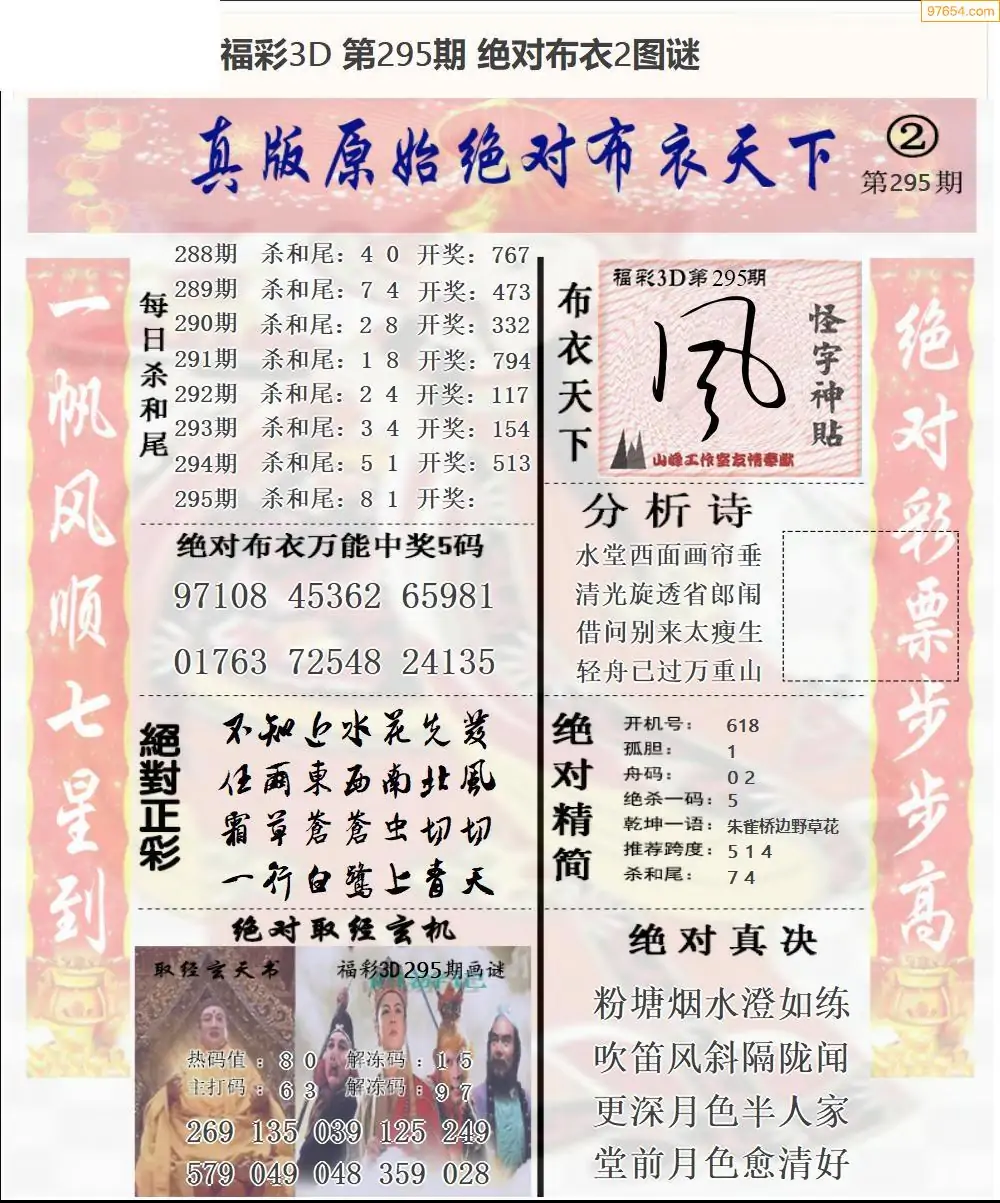 97654.com
福彩3D 第295期 绝对布衣2图谜
真版原始绝对布衣天下
②
第295期
一帆风顺七星到
每日杀和尾
288期 杀和尾：4 0 开奖：767
289期 杀和尾：7 4 开奖：473
290期 杀和尾：2 8 开奖：332
291期 杀和尾：1 8 开奖：794
292期 杀和尾：2 4 开奖：117
293期 杀和尾：3 4 开奖：154
294期 杀和尾：5 1 开奖：513
295期 杀和尾：8 1 开奖：
绝对布衣万能中奖5码
97108 45362 65981
01763 72548 24135
絕對正彩
不知近水花先发
任爾東西南北風
霜草蒼蒼虫切切
一行白鹭上青天
绝对取经玄机
取经玄天书
福彩3D295期画谜
热码值：8 0 解冻码：1 5
主打码：6 3 解冻码：9 7
269 135 039 125 249
579 049 048 359 028
布衣天下
福彩3D第295期
風
怪字神貼
山峰工作室友情奉献
分析诗
水堂西面画帘垂
清光旋透省郎闱
借问别来太瘦生
轻舟已过万重山
绝对精简
开机号： 618
孤胆： 1
舟码： 0 2
绝杀一码：5
乾坤一语：朱雀桥边野草花
推荐跨度：5 1 4
杀和尾： 7 4
绝对真决
粉塘烟水澄如练
吹笛风斜隔陇闻
更深月色半人家
堂前月色愈清好
绝对彩票步步高